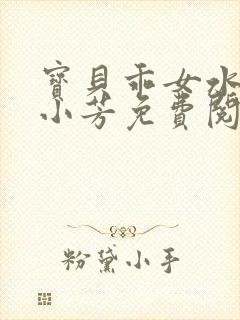 寶貝乖女水
小芳免費閱
粉黛小手